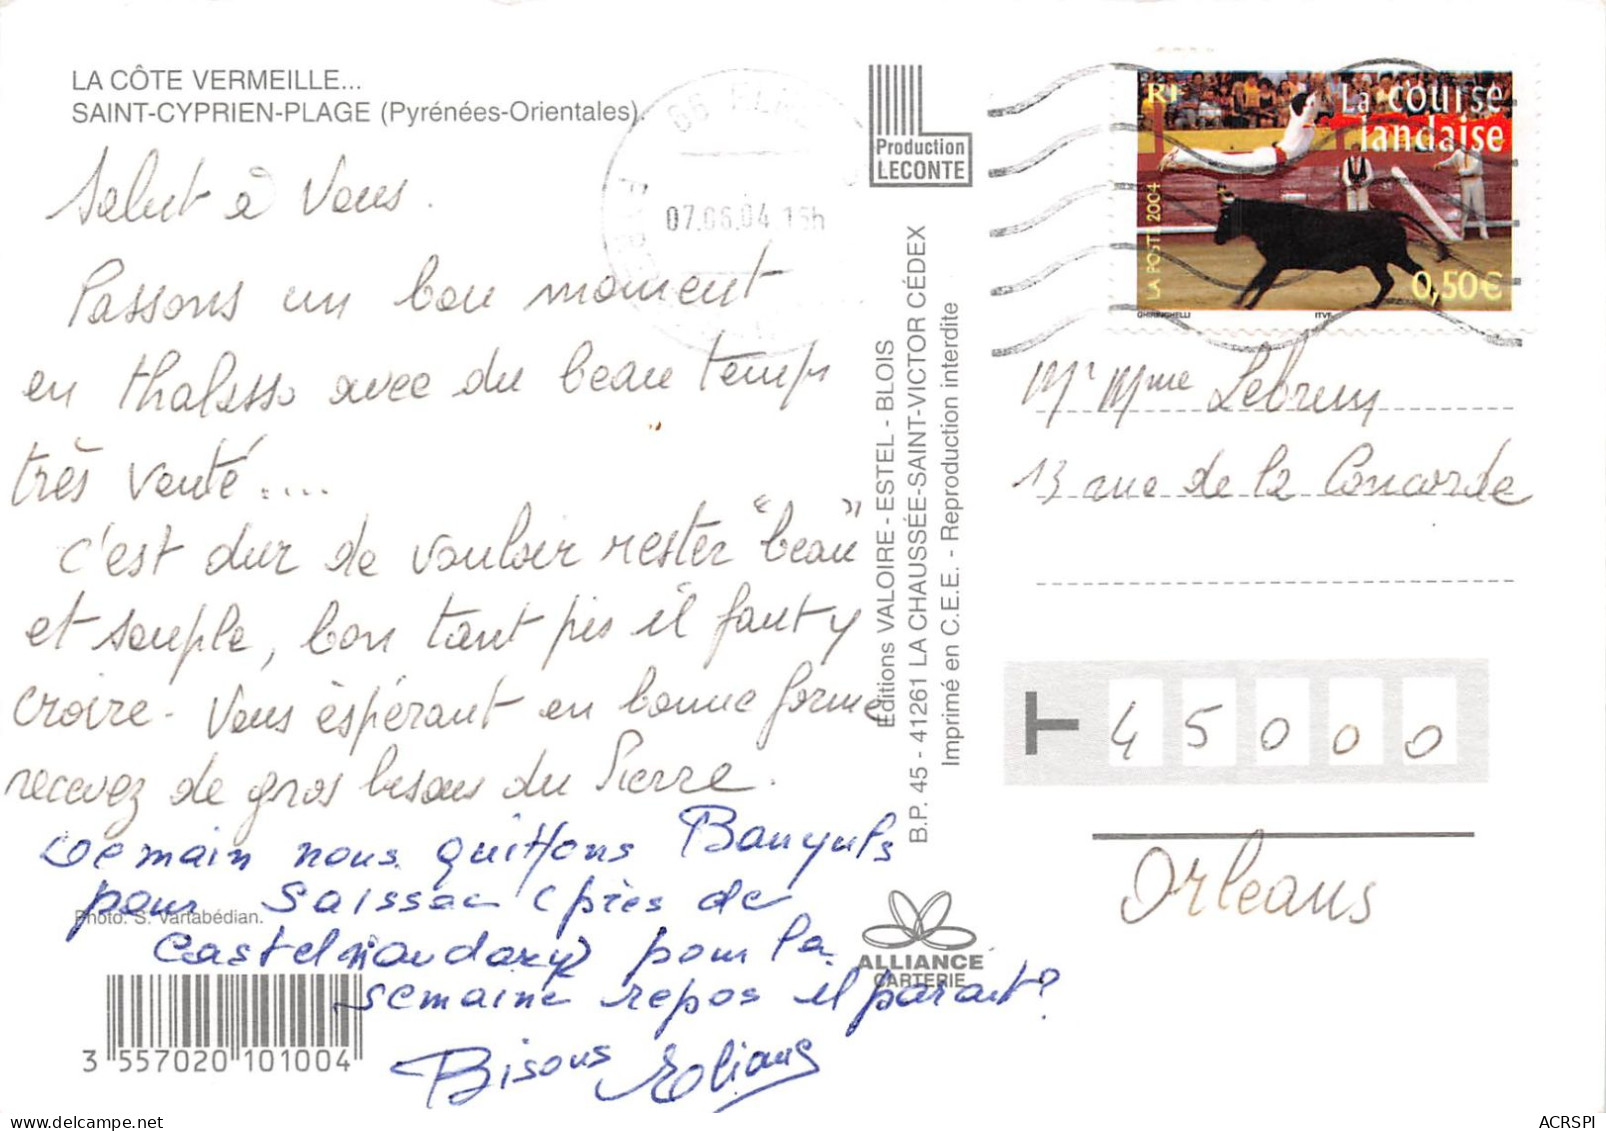 LA CÔTE VERMEILLE...
SAINT-CYPRIEN-PLAGE (Pyrénées-Orientales).
Salut à Vous.
Passons un bon moment
en thalasso avec du beau temps
très venté.....
c'est dur de vouloir rester "beau"
et souple, bon tant pis il faut y
croire - Vous èspérant en bonne forme
recevez de gros bisous du Pierre.
Demain nous quittons Banyuls
pour Saissac (près de
Castelnaudary pour la
semaine repos il parait?
Bisous Eliane
Photo. S. Vartabédian.
3 557020 101004
07.06.04 15h
Production
LECONTE
Editions VALOIRE - ESTEL - BLOIS
B.P. 45 - 41261 LA CHAUSSÉE-SAINT-VICTOR CÉDEX
Imprimé en C.E.E. - Reproduction interdite
ALLIANCE
CARTERIE
RF
La course
landaise
LA POSTE 2004
0,50€
GHIRINGHELLI
ITVF
Mr Mme Lebrun
13 rue de la Concorde
45000
Orléans
ACRSPI